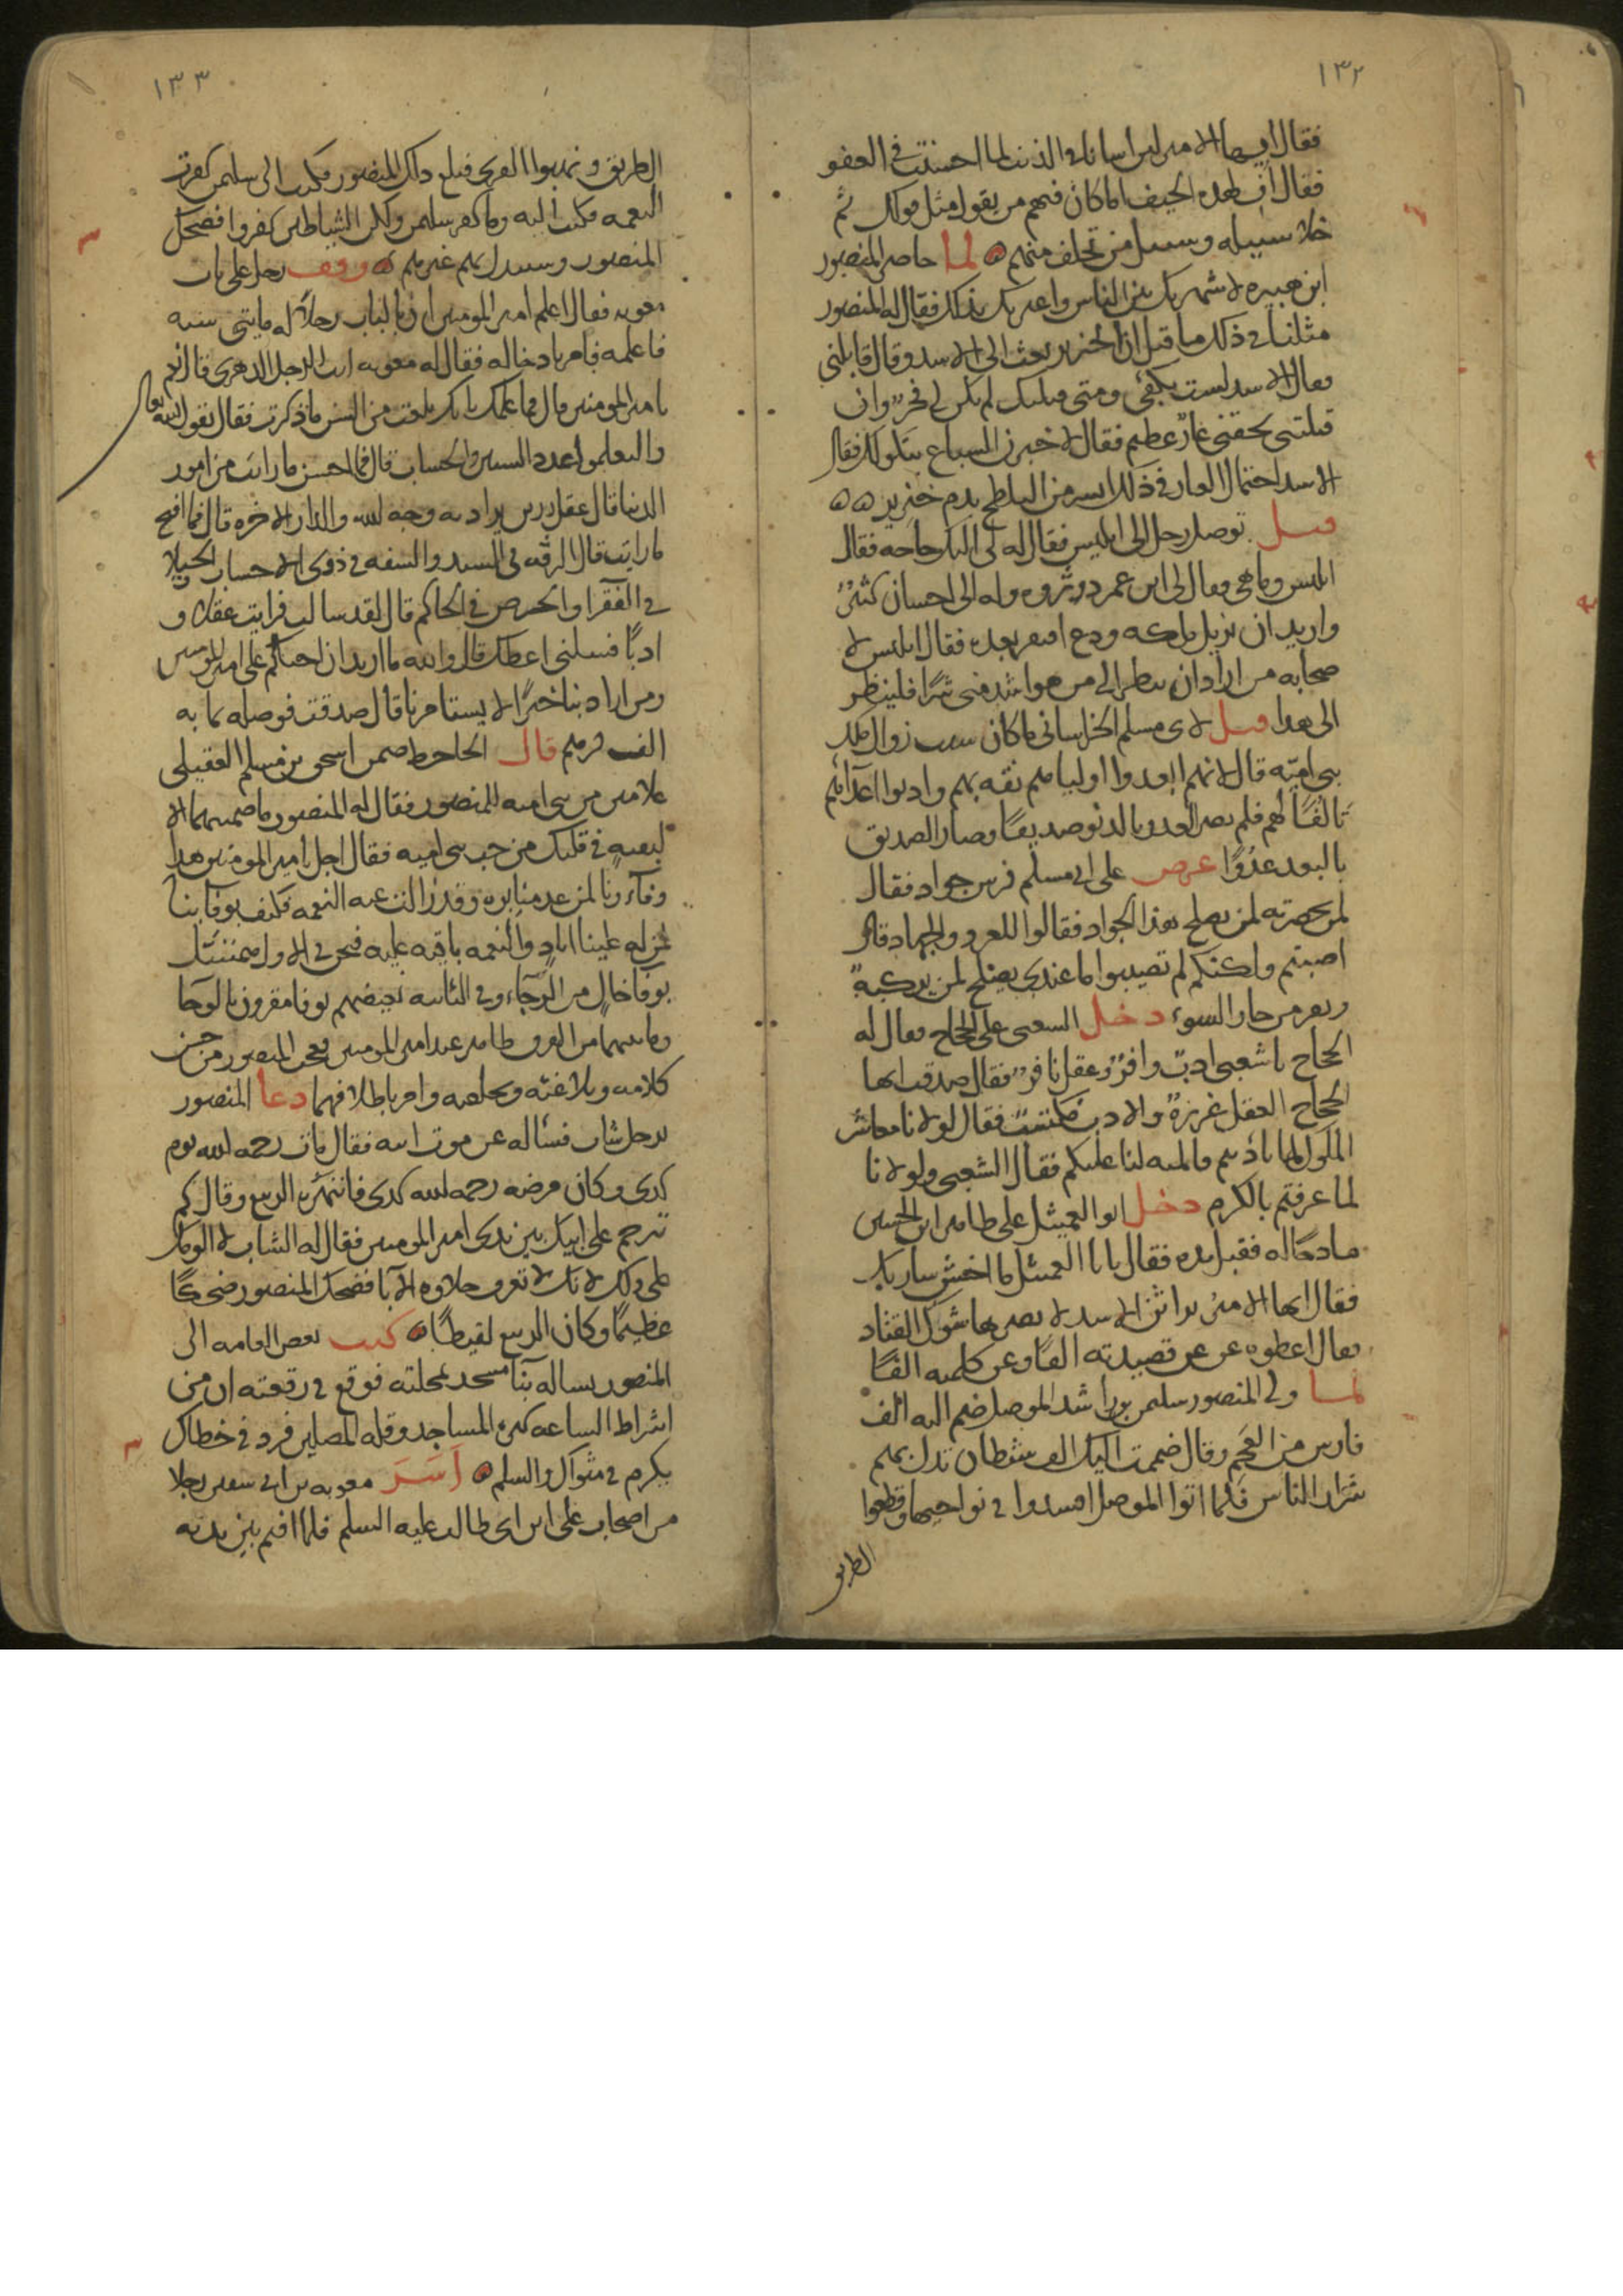 ١٣٢
فقال ايها الامير لين اسانا في الذنب لما احسنت في العفو
فقال اف لهذه الجيف اما كان فيهم من يقول مثل قولك ثم
خلا سبيله وسبيل من تخلف منهم لما حاصر المنصور
ابن هبيره لاشهرنك بين الناس واعيرنك بذلك فقال له المنصور
مثلنا في ذلك ما قيل ان الخنزير بعث الى الاسد وقال قاتلني
فقال الاسد لست بكفئي ومتى قتلتك لم يكن لي فخر وان
قتلتني لحقني عار عظيم فقال لاخبرن السباع بنكولك فقال
الاسد احتمال العار في ذلك ايسر من التلطخ بدم خنزير
قيل توصل رجل الى ابليس فقال له لي اليك حاجه فقال
ابليس وما هي فقال لي ابن عم ذو ثروه وله الي احسان كثير
واريد ان تزيل ماله ودع افتقر بعده فقال ابليس لا
صحابه من اراد ان ينظر الى من هو اشد مني شرا فلينظر
الى هذا قيل لابي مسلم الخراساني ما كان سبب زوال ملك
بني اميه قال لانهم ابعدوا اوليامهم ثقه بهم وادنوا اعداهم
تالفا لهم فلم يصر العدو بالدنو صديقا وصار الصديق
بالبعد عدوا عرض على ابي مسلم فرس جواد فقال
لمن حضرته لمن يصلح هذا الجواد فقالوا للغزو والجهاد قال
اصبتم ولكنكم لم تصيبوا ما عندي يصلح لمن يركبه
ويفر من جار السوء دخل الشعبي على الحجاج فقال له
الحجاج يا شعبي ادب وافر وعقل نافر فقال صدقت ايها
الحجاج العقل غريزة والادب مكتسب فقال لولا نا معاشر
الملوك لما تادبتم فالمنه لنا عليكم فقال الشعبي ولولا نا
لما عرفتم بالكرم دخل ابو العميثل على طاهر ابن الحسين
مادحا له فقبل يده فقال يا ابا العميثل ما اخشن شاربك
فقال ايها الامير براثن الاسد لا يضرها شوك القتاد
فقال اعطوه عن قصيدته الفا وعن كلمته الفا
لما ولي المنصور سليمن بن راشد الموصل ضم اليه الف
فارس من العجم وقال ضممت اليك الف شيطان تدل بهم
شرار الناس فلما اتوا الموصل افسدوا في نواحيها وقطعوا
الطريق
١٣٣
الطريق ونهبوا القرى فبلغ ذلك المنصور فكتب الى سليمن كفرت
النعمه فكتب اليه وما كفر سليمن ولكن الشياطين كفروا فضحك
المنصور واستبدل بهم غيرهم وقف رجل على باب
معويه فقال اعلم امير المومنين ان بالباب رجلا له مايتي سنه
فاعلمه فامر بادخاله فقال له معويه انت الرجل الدهري قال نعم
يا امير المومنين قال فما علمك بانك بلغت من السن ما ذكرت فقال بقول الله تعالى
ولتعلموا عدد السنين والحساب قال فما احسن ما رايت من امور
الدنيا قال عقل يراد به وجه الله والدار الاخره قال فما اقبح
ما رايت قال في السيد والسفه في ذوي الاحساب الخيلا
في الفقرا والحرص في الحاكم قال لقد سالت فرايت عقلا و
ادبا فسلني اعطك قال والله ما اريد ان احتكم على امير المومنين
ومن اراد بنا خيرا لا يستامرنا قال صدقت فوصله بمايه
الف درهم قال الجاحظ ضمن اسحق بن مسلم العقيلي
غلامين من بني اميه للمنصور فقال له المنصور ما ضمنتهما الا
لبقيه في قلبك من حب بني اميه فقال اجل يا امير المومنين هذا
وفاونا لمن عدمنا بره وقد زالت عنه النعمه فكيف بوفاينا
لمن له علينا اياد والنعمه باقيه عليه فنحن في الاول
بوفا خال من الرجاء وفي الثانيه بوفا مقرون بالرجا
كلامه وبلاغته وامر باطلاقهما دعا المنصور
برجل شاب فساله عن موت ابيه فقال مات رحمه الله يوم
كذي وكان مرضه رحمه الله كذي فانتهره الربيع وقال كم
ترحم على ابيك بين يدي امير المومنين فقال له الشاب لا الومك
على ذلك لانك لا تعرف حلاوه الابا فضحك المنصور ضحكا
عظيما وكان الربيع لقيطا كتب بعض العامه الى
المنصور يساله بنا مسجد بمحلته فوقع في رقعته ان من
اشراط الساعه كثره المساجد وقله المصلين فزد في خطاك
يكرم في مثواك والسلم اسر معويه بن ابي سفين رجلا
من اصحاب علي ابن ابي طالب عليه السلم فلما اقيم بين يديه